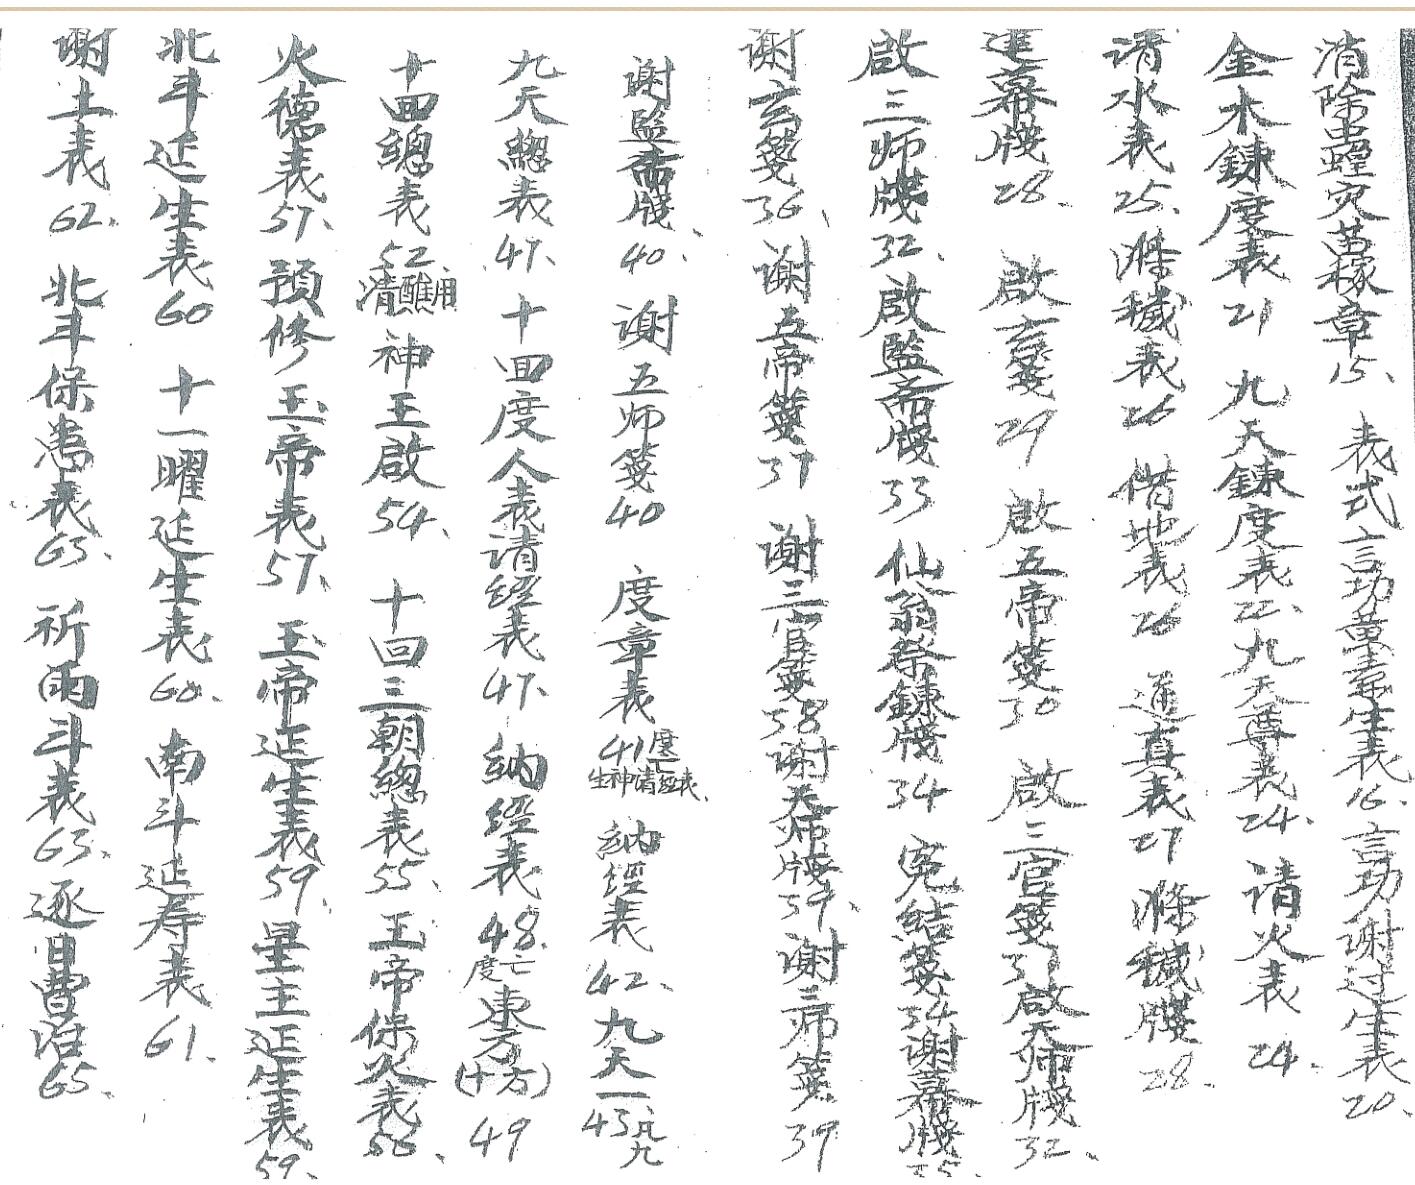 消除虫蝗灾苗稼章15、 表式言功黄素生表16. 言功谢过生表20、
金木鍊度表21 九天鍊度表22、九天尊表24、 请火表24.
请水表25、滌穢表26 借地表26 通真表27 滌穢牋28.
進幕牋28、 啟玄箋29 啟五帝箋30 啟三官箋31啟天师牋32、
啟三师牋32、啟監斋牋33 仙翁祭鍊牋34 冤结箋34谢幕牋35、
谢玄箋36、谢五帝箋37 谢三官箋38谢天师牋39、谢三师箋39
谢監斋牋40、 谢五师箋40 度章表41度亡生神请經表、 納經表42、九天一43凡九
九天總表47、十回度人表请經表47、納經表48度亡東方(十方)49
十回總表52清醮用神王啟54、 十回三朝總表55、玉帝保火表56、
火德表57、預修玉帝表57、玉帝延生表59、星主延生表59、
北斗延生表60 十一曜延生表60、南斗延寿表61.
谢土表62、北斗保患表63、祈雨斗表63、逐日曹治65、